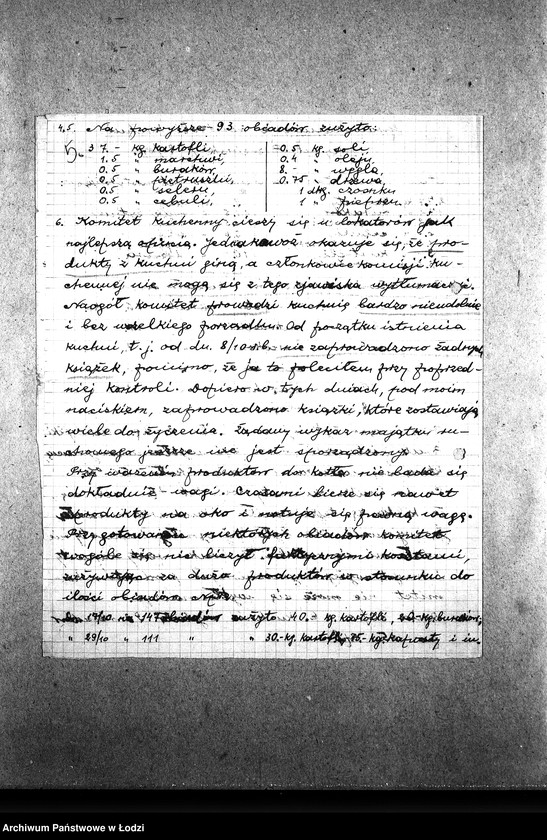 4.5. Na powyższe 93 obiadów zużyto:
5. 37.- kg. kartofli, 0.5 kg. soli,
1.5 " marchwi, 0.4 " oleju,
0.5 " buraków, 8.- " węgla,
0.5 " pietruszki, 0.75 " drzewa,
0.5 " seleru, 1 dkg. czosnku
0.5 " cebuli, 1 " pieprzu.
6. Komitet kuchenny cieszy się u lokatorów jak
najlepszą opinią. Jednakowoż okazuje się, że pro-
dukty z kuchni giną, a członkowie komisji ku-
chennej nie mogą się z tego zjawiska wytłumaczyć.
Naogół komitet prowadzi kuchnię bardzo nieudolnie
i bez wszelkiego porządku. Od początku istnienia
kuchni, t.j. od dn. 8/10 r.b. nie zaprowadzono żadnych
książek, pomimo, że ja to poleciłem przy poprzed-
niej kontroli. Dopiero w tych dniach, pod moim
naciskiem, zaprowadzono książki, które zostawiają
wiele do życzenia. Żądany wykaz majątku ru-
chomego jeszcze nie jest sporządzony.
Przy ważeniu produktów do kotła nie bada się
dokładnie wagi. Czasami bierze się nawet
produkty na oko i notuje się pewną wagę.
Przy gotowaniu niektórych obiadów komitet
wogóle się nie liczył z kosztami,
zużywając za dużo produktów w stosunku do
ilości obiadów.
17/10 na 147 obiadów zużyto 40.- kg. kartofli, kg. buraków,
" 29/10 " 111 " " 30.- kg. kartofli, kg. kapusty i in.
Archiwum Państwowe w Łodzi